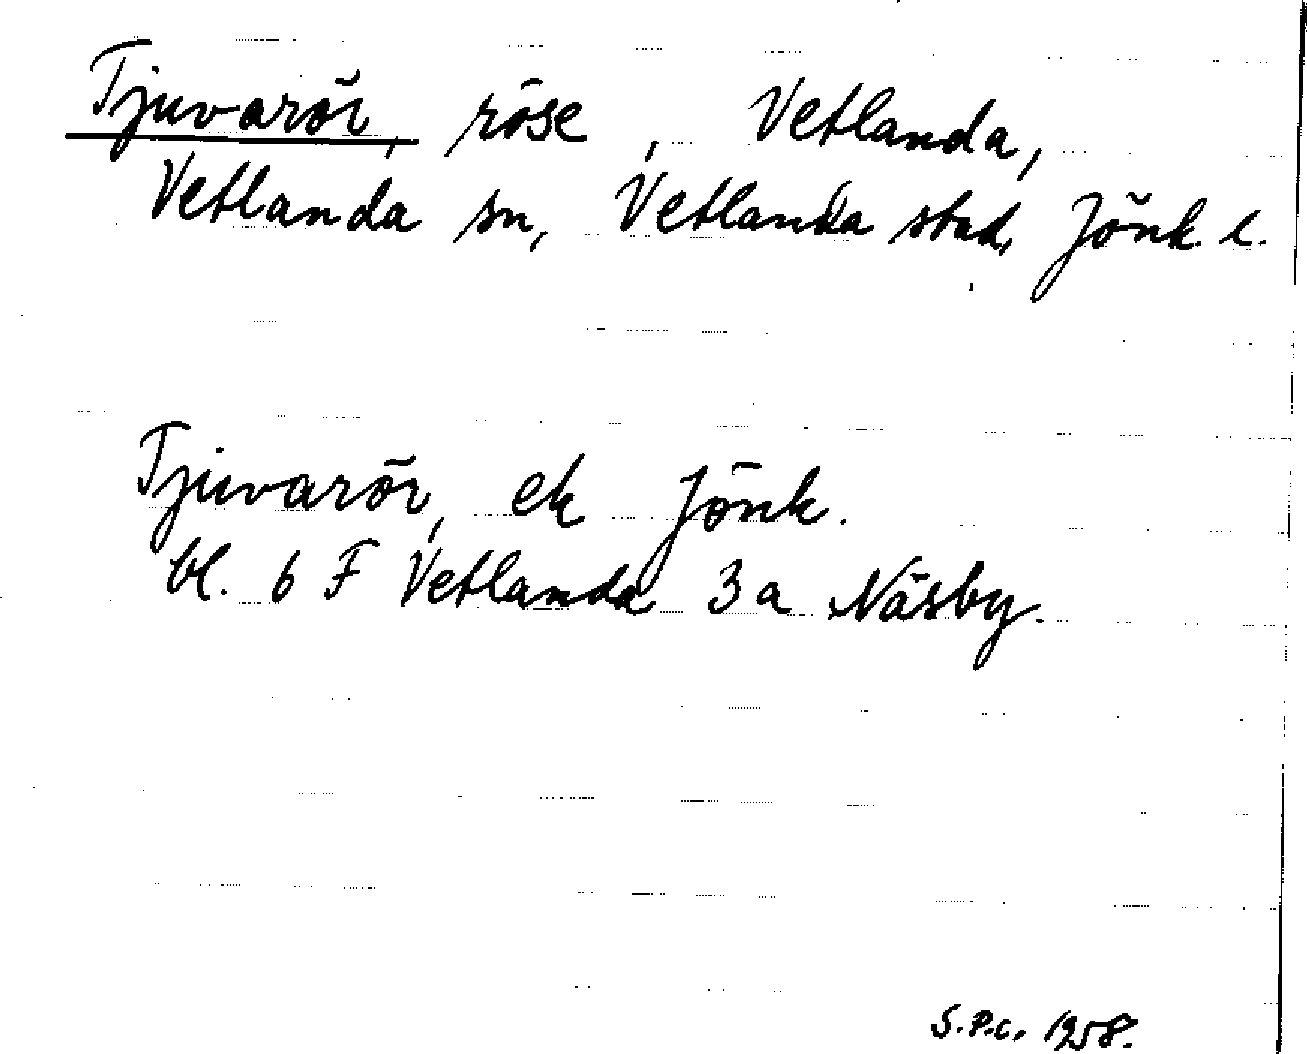 Tjuvarör, röse, Vetlanda,
Vetlanda sn, Vetlanda stad, Jönk. l.
Tjuvarör, ek Jönk.
bl. 6 F Vetlanda 3 a Näsby.
S.P.C. 1958.